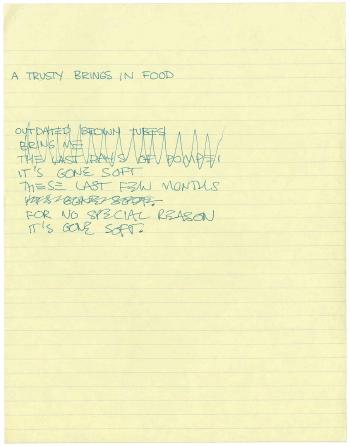 A TRUSTY BRINGS IN FOOD
OUTDATED BROWN TUBES
BRING ME
THE LAST DAYS OF POMPEI
IT'S GONE SOFT
THESE LAST FEW MONTHS
IT'S GONE SOFT.
FOR NO SPECIAL REASON
IT'S GONE SOFT.